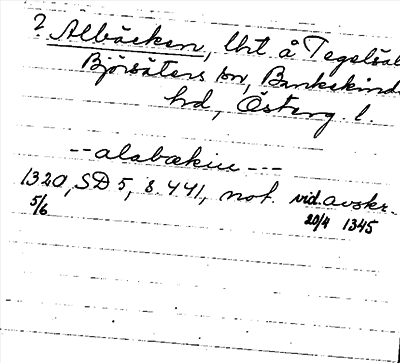 ? Älbäcken, lht å Tegelsäl
Björsäters sn, Bankekinds
hrd, Österg. l.
-- alabækiu ---
1320, SD 5, s. 441, not. vid. avskr.
5/6 20/4 1345